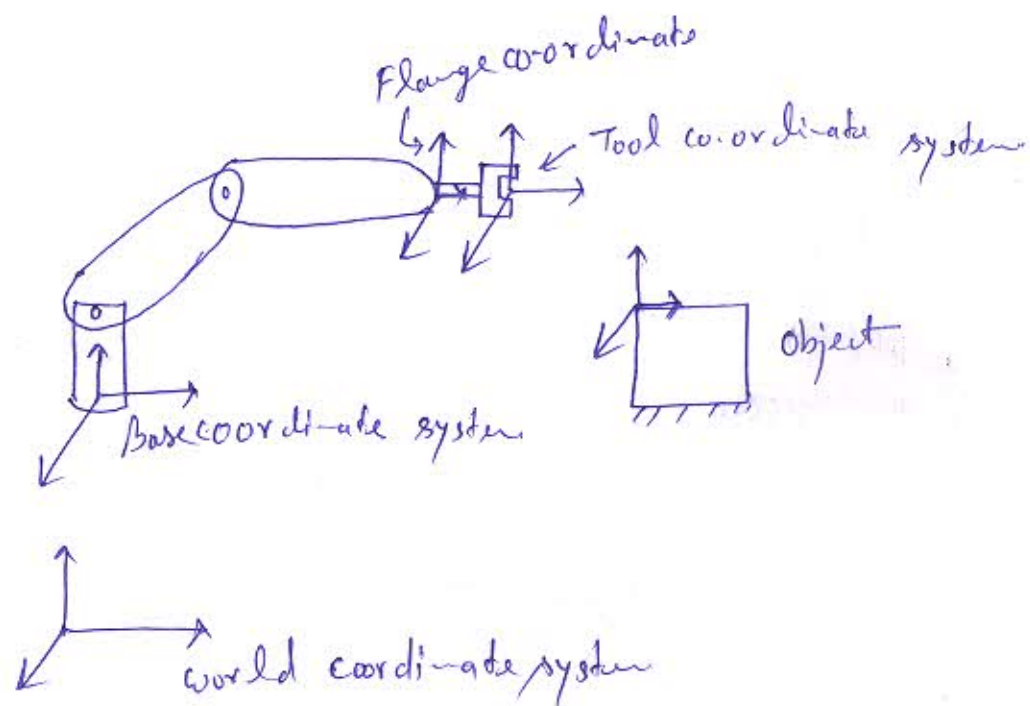 Flange co-ordinate
Tool co-ordinate system
Object
Base coordinate system
world coordinate system